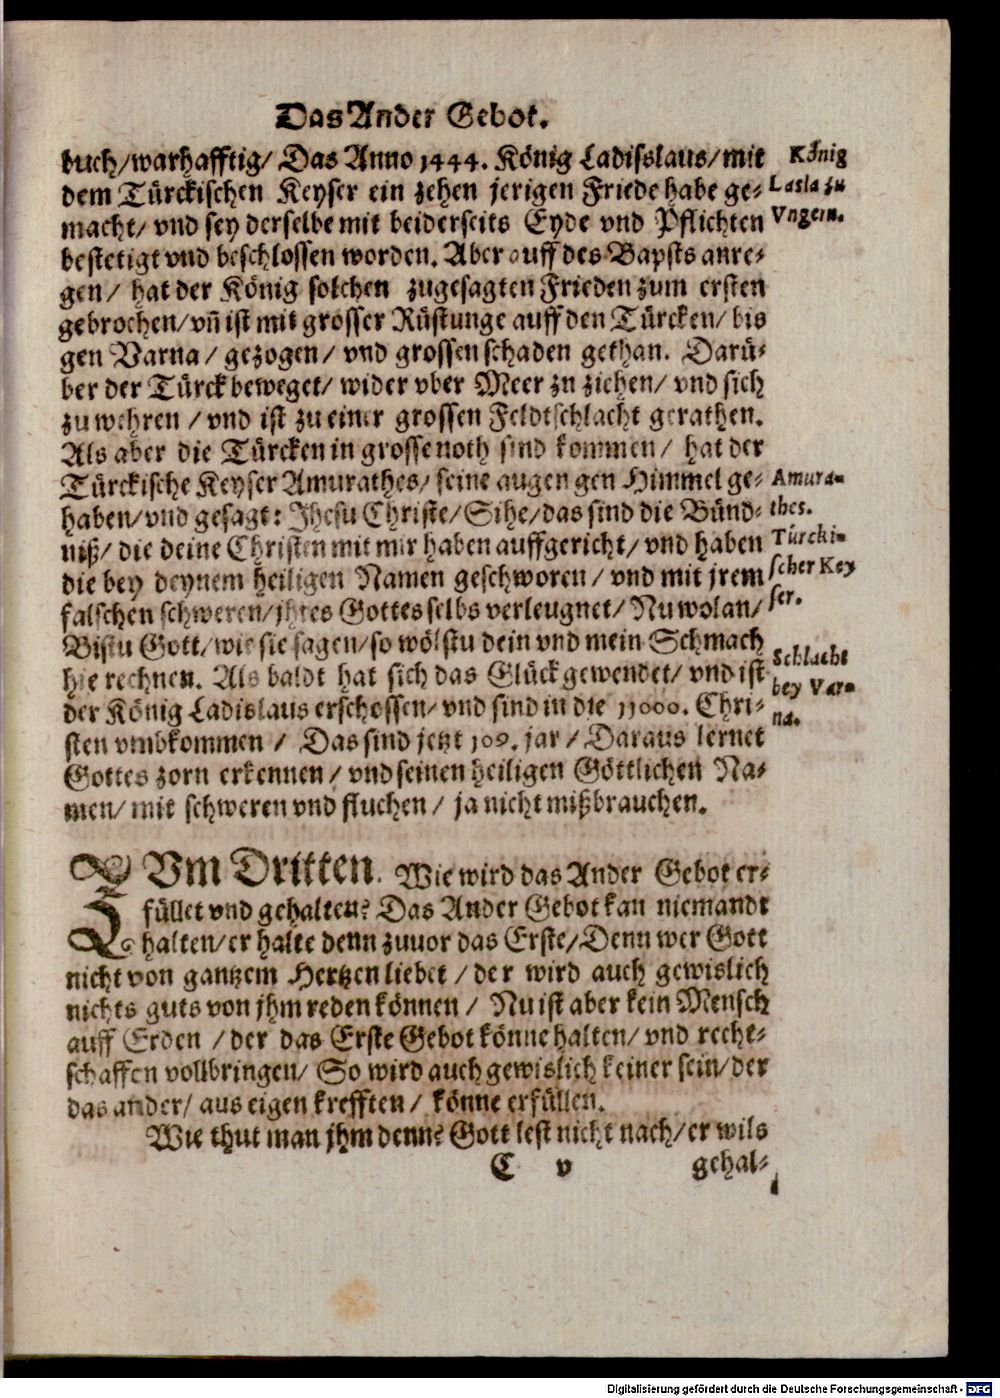 Das Ander Gebot.
buch/warhafftig/ Das Anno 1444. König Ladisslaus/mit
dem Türckischen Keyser ein zehen jerigen Friede habe ge-
macht/ vnd sey derselbe mit beiderseits Eyde vnd Pflichten
bestetigt vnd beschlossen worden. Aber auff des Bapsts anre-
gen/ hat der König solchen zugesagten Frieden zum ersten
gebrochen/vñ ist mit grosser Rüstunge auff den Türcken/ bis
gen Varna/ gezogen/ vnd grossen schaden gethan. Darü-
ber der Türck beweget/ wider vber Meer zu ziehen/ vnd sich
zu wehren/ vnd ist zu einer grossen Feldtschlacht gerathen.
Als aber die Türcken in grosse noth sind kommen/ hat der
Türckische Keyser Amurathes/ seine augen gen Himmel ge-
haben/vnd gesagt: Jhesu Christe/Sihe/das sind die Bünd-
niß/ die deine Christen mit mir haben auffgericht/ vnd haben
die bey deynem heiligen Namen geschworen/ vnd mit jrem
falschen schweren/jhres Gottes selbs verleugnet/ Nu wolan/
Bistu Gott/wie sie sagen/so wölstu dein vnd mein Schmach
hie rechnen. Als baldt hat sich das Glück gewendet/ vnd ist
der König Ladislaus erschossen/ vnd sind in die 11000. Chri-
sten vmbkommen/ Das sind jetzt 109. jar/ Daraus lernet
Gottes zorn erkennen/ vnd seinen heiligen Göttlichen Na-
men/ mit schweren vnd fluchen/ ja nicht mißbrauchen.
König
Lasla zu
Vngern.
Amura-
thes.
Türcki-
scher Key
ser.
Schlacht
bey Var-
na.
ZVm Dritten. Wie wird das Ander Gebot er-
füllet vnd gehalten? Das Ander Gebot kan niemandt
halten/er halte denn zuuor das Erste/Denn wer Gott
nicht von gantzem Hertzen liebet/ der wird auch gewislich
nichts guts von jhm reden können/ Nu ist aber kein Mensch
auff Erden/ der das Erste Gebot könne halten/ vnd recht-
schaffen vollbringen/ So wird auch gewislich keiner sein/der
das ander/ aus eigen krefften/ könne erfüllen.
Wie thut man jhm denn? Gott lest nicht nach/er wils
C v gehal-
Digitalisierung gefördert durch die Deutsche Forschungsgemeinschaft - DFG